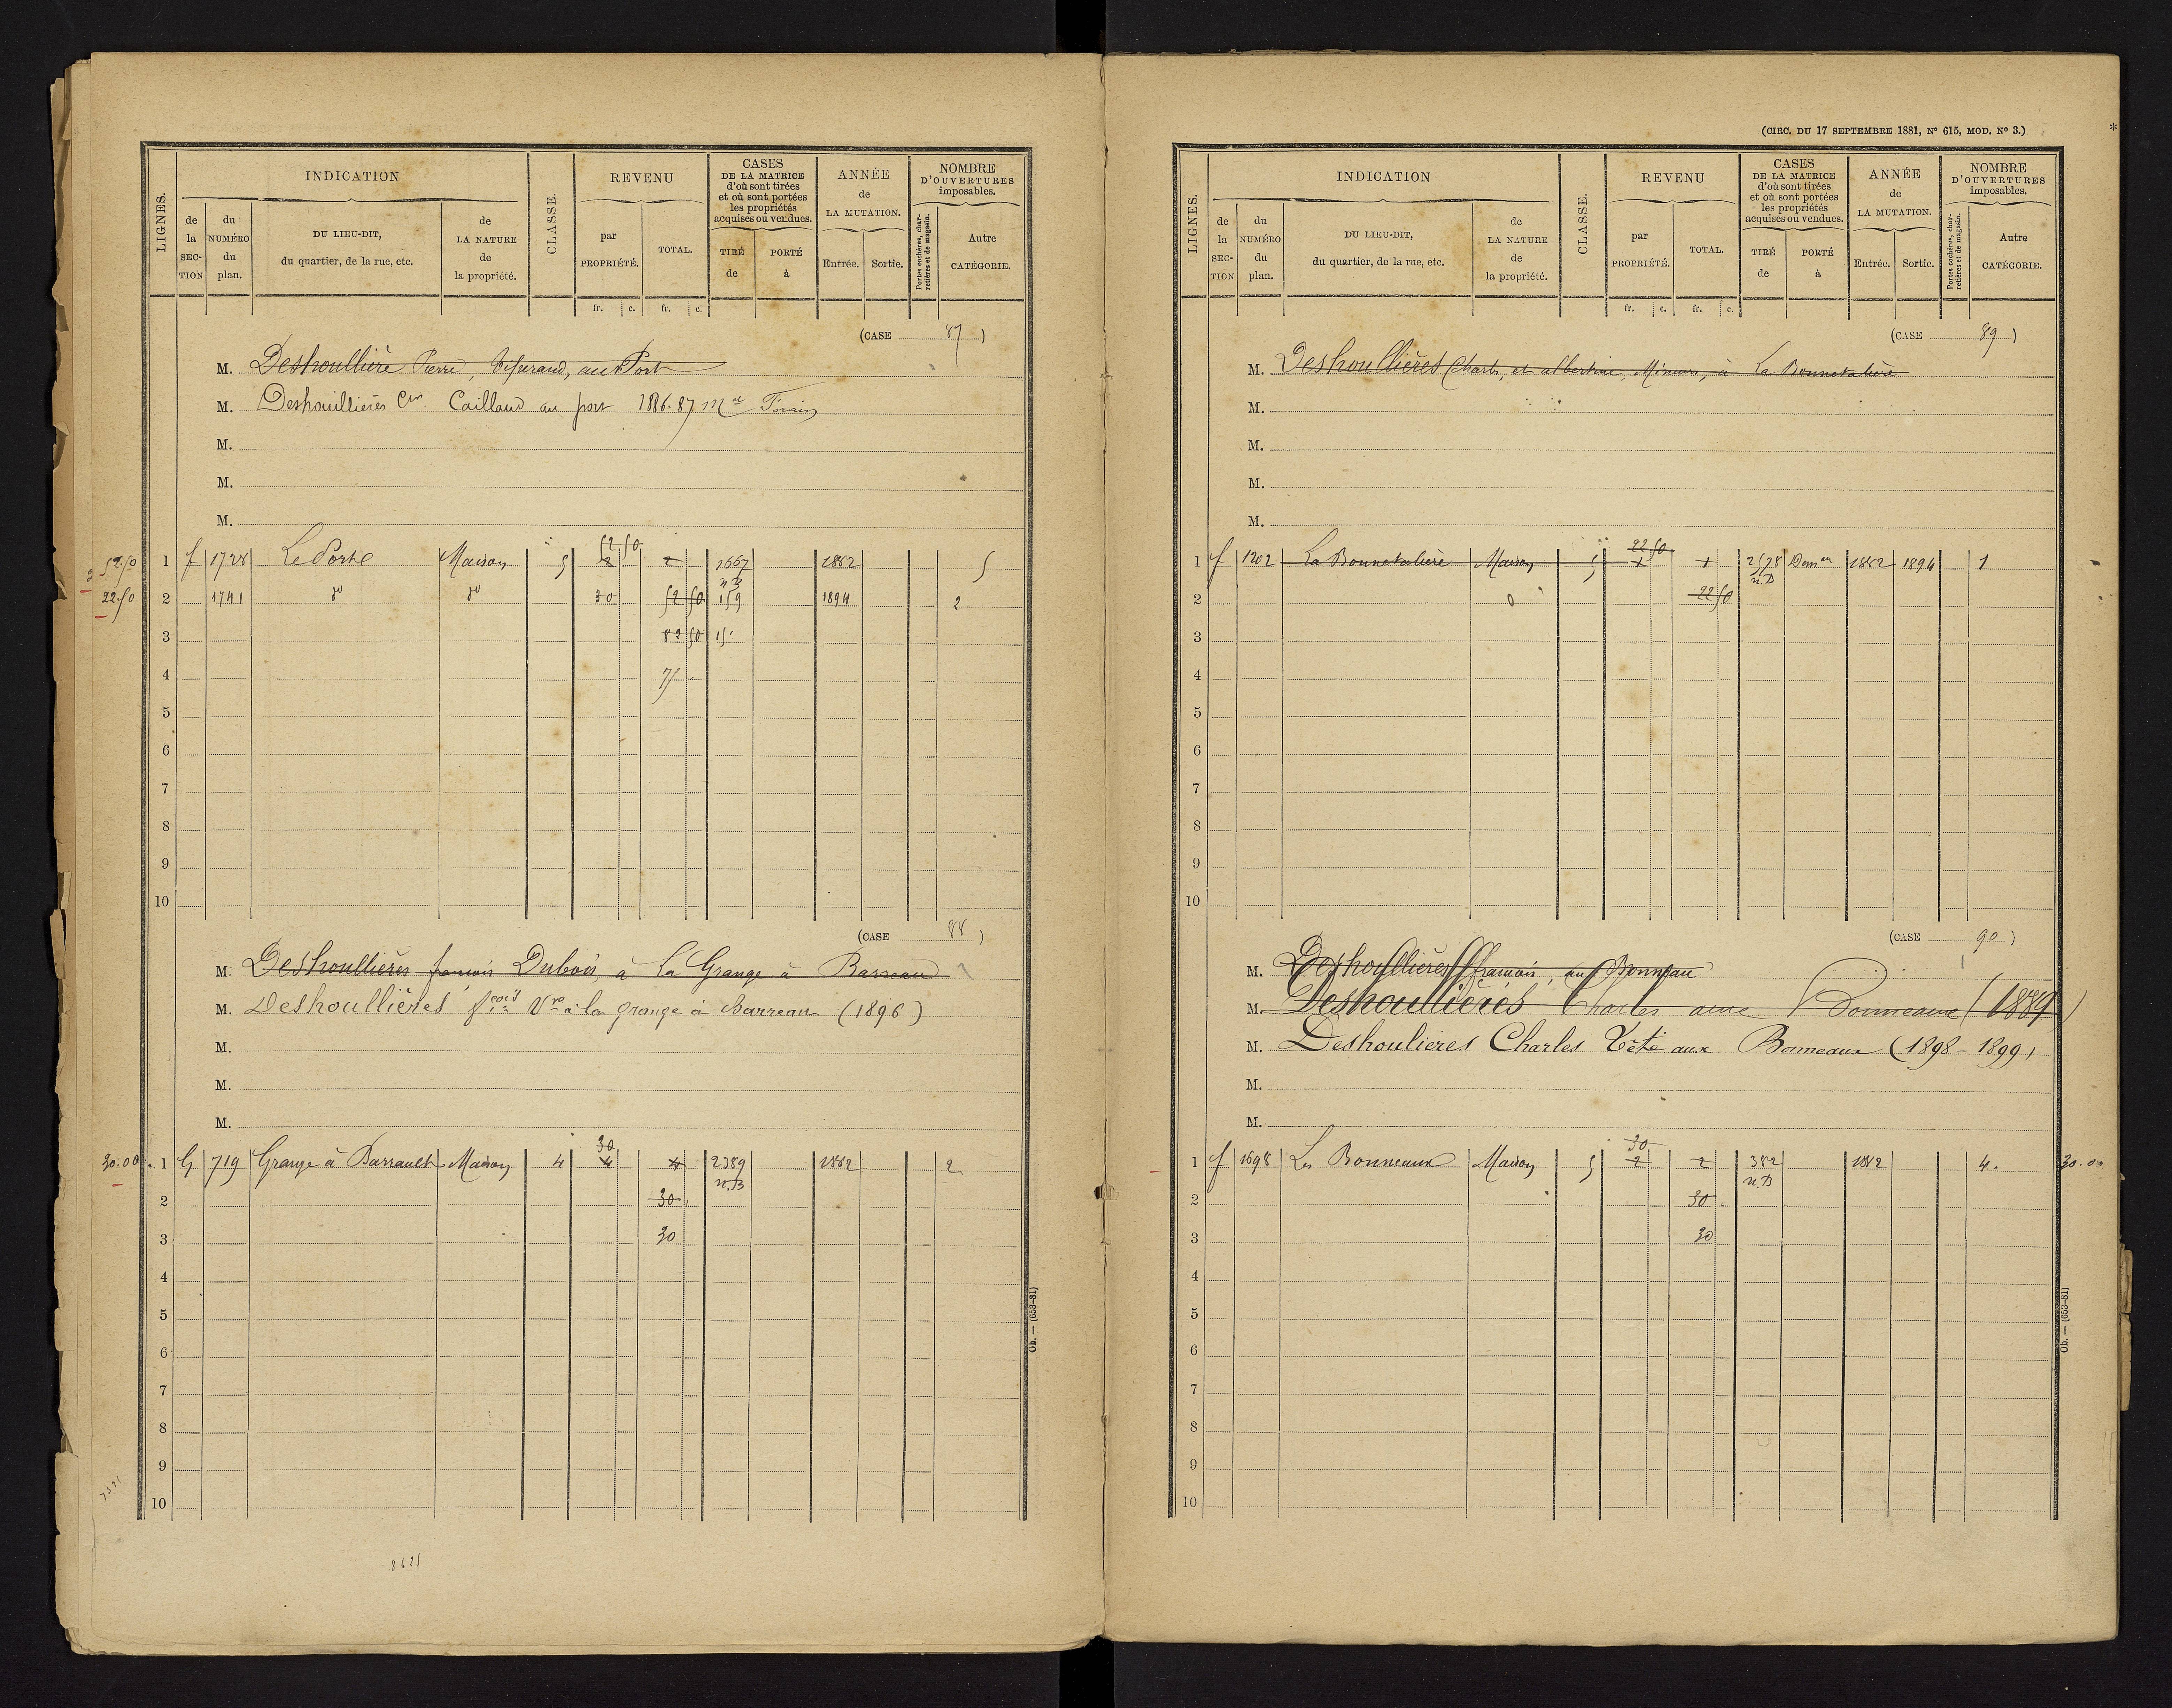 INDICATION REVENU CASES DE LA MATRICE d'où sont tirées et où sont portées les propriétés acquises ou vendues. ANNÉE de LA MUTATION. NOMBRE D'OUVERTURES imposables.
LIGNES. de la SECTION du NUMÉRO du plan. DU LIEU-DIT, du quartier, de la rue, etc. de LA NATURE de la propriété. CLASSE. par PROPRIÉTÉ. TOTAL. TIRÉ de PORTÉ à Entrée. Sortie. Portes cochères, charretières et de magasin. Autre CATÉGORIE.
fr. c. fr. c.
(CASE 87)
M. Deshoullière Pierre, au Port
M. Deshouillières Caillaud au port 1886.87 Md Forain
M.
M.
M.
52.50 1 f 1728 Le Porte Maison 5 2 52 50 2 1667 n B 1882 5
22.50 2 1741 do do 30 52 50 159 1894 2
3 82 50
4 75
5
6
7
8
9
10
(CASE 88)
M. Deshoullières francois Dubois, à la Grange à Barreau
M. Deshoullières fcois Vve à la grange à Barreau (1896)
M.
M.
M.
30.00 1 G 719 Grange à Barrault Maison 4 4 30 4 2389 n.B 1882 2
2 30
3 30
4
5
6
7
8
9
10
8625
Ob. — (653-81)
(CIRC. DU 17 SEPTEMBRE 1881, No 615, MOD. No 3.)
INDICATION REVENU CASES DE LA MATRICE d'où sont tirées et où sont portées les propriétés acquises ou vendues. ANNÉE de LA MUTATION. NOMBRE D'OUVERTURES imposables.
LIGNES. de la SECTION du NUMÉRO du plan. DU LIEU-DIT, du quartier, de la rue, etc. de LA NATURE de la propriété. CLASSE. par PROPRIÉTÉ. TOTAL. TIRÉ de PORTÉ à Entrée. Sortie. Portes cochères, charretières et de magasin. Autre CATÉGORIE.
fr. c. fr. c.
(CASE 89)
M. Deshoullières Charles, et albertine, Mineurs, à La Bonnetalière
M.
M.
M.
M.
1 f 1202 La Bonnetalière Maison 5 1 22 50 1 2578 n.B Dem on 1882 1894 1
2 0 22 50
3
4
5
6
7
8
9
10
(CASE 90)
M. Deshoullières francois, au Bonneau
M. Deshoullières Charles aux Bonneaux (1889)
M. Deshoulieres Charles Tête aux Bonneaux (1898-1899)
M.
M.
1 f 1698 Les Bonneaux Maison 5 2 30 2 382 n.B 1882 4. 30.00
2 30
3 30
4
5
6
7
8
9
10
Ob. — (653-81)